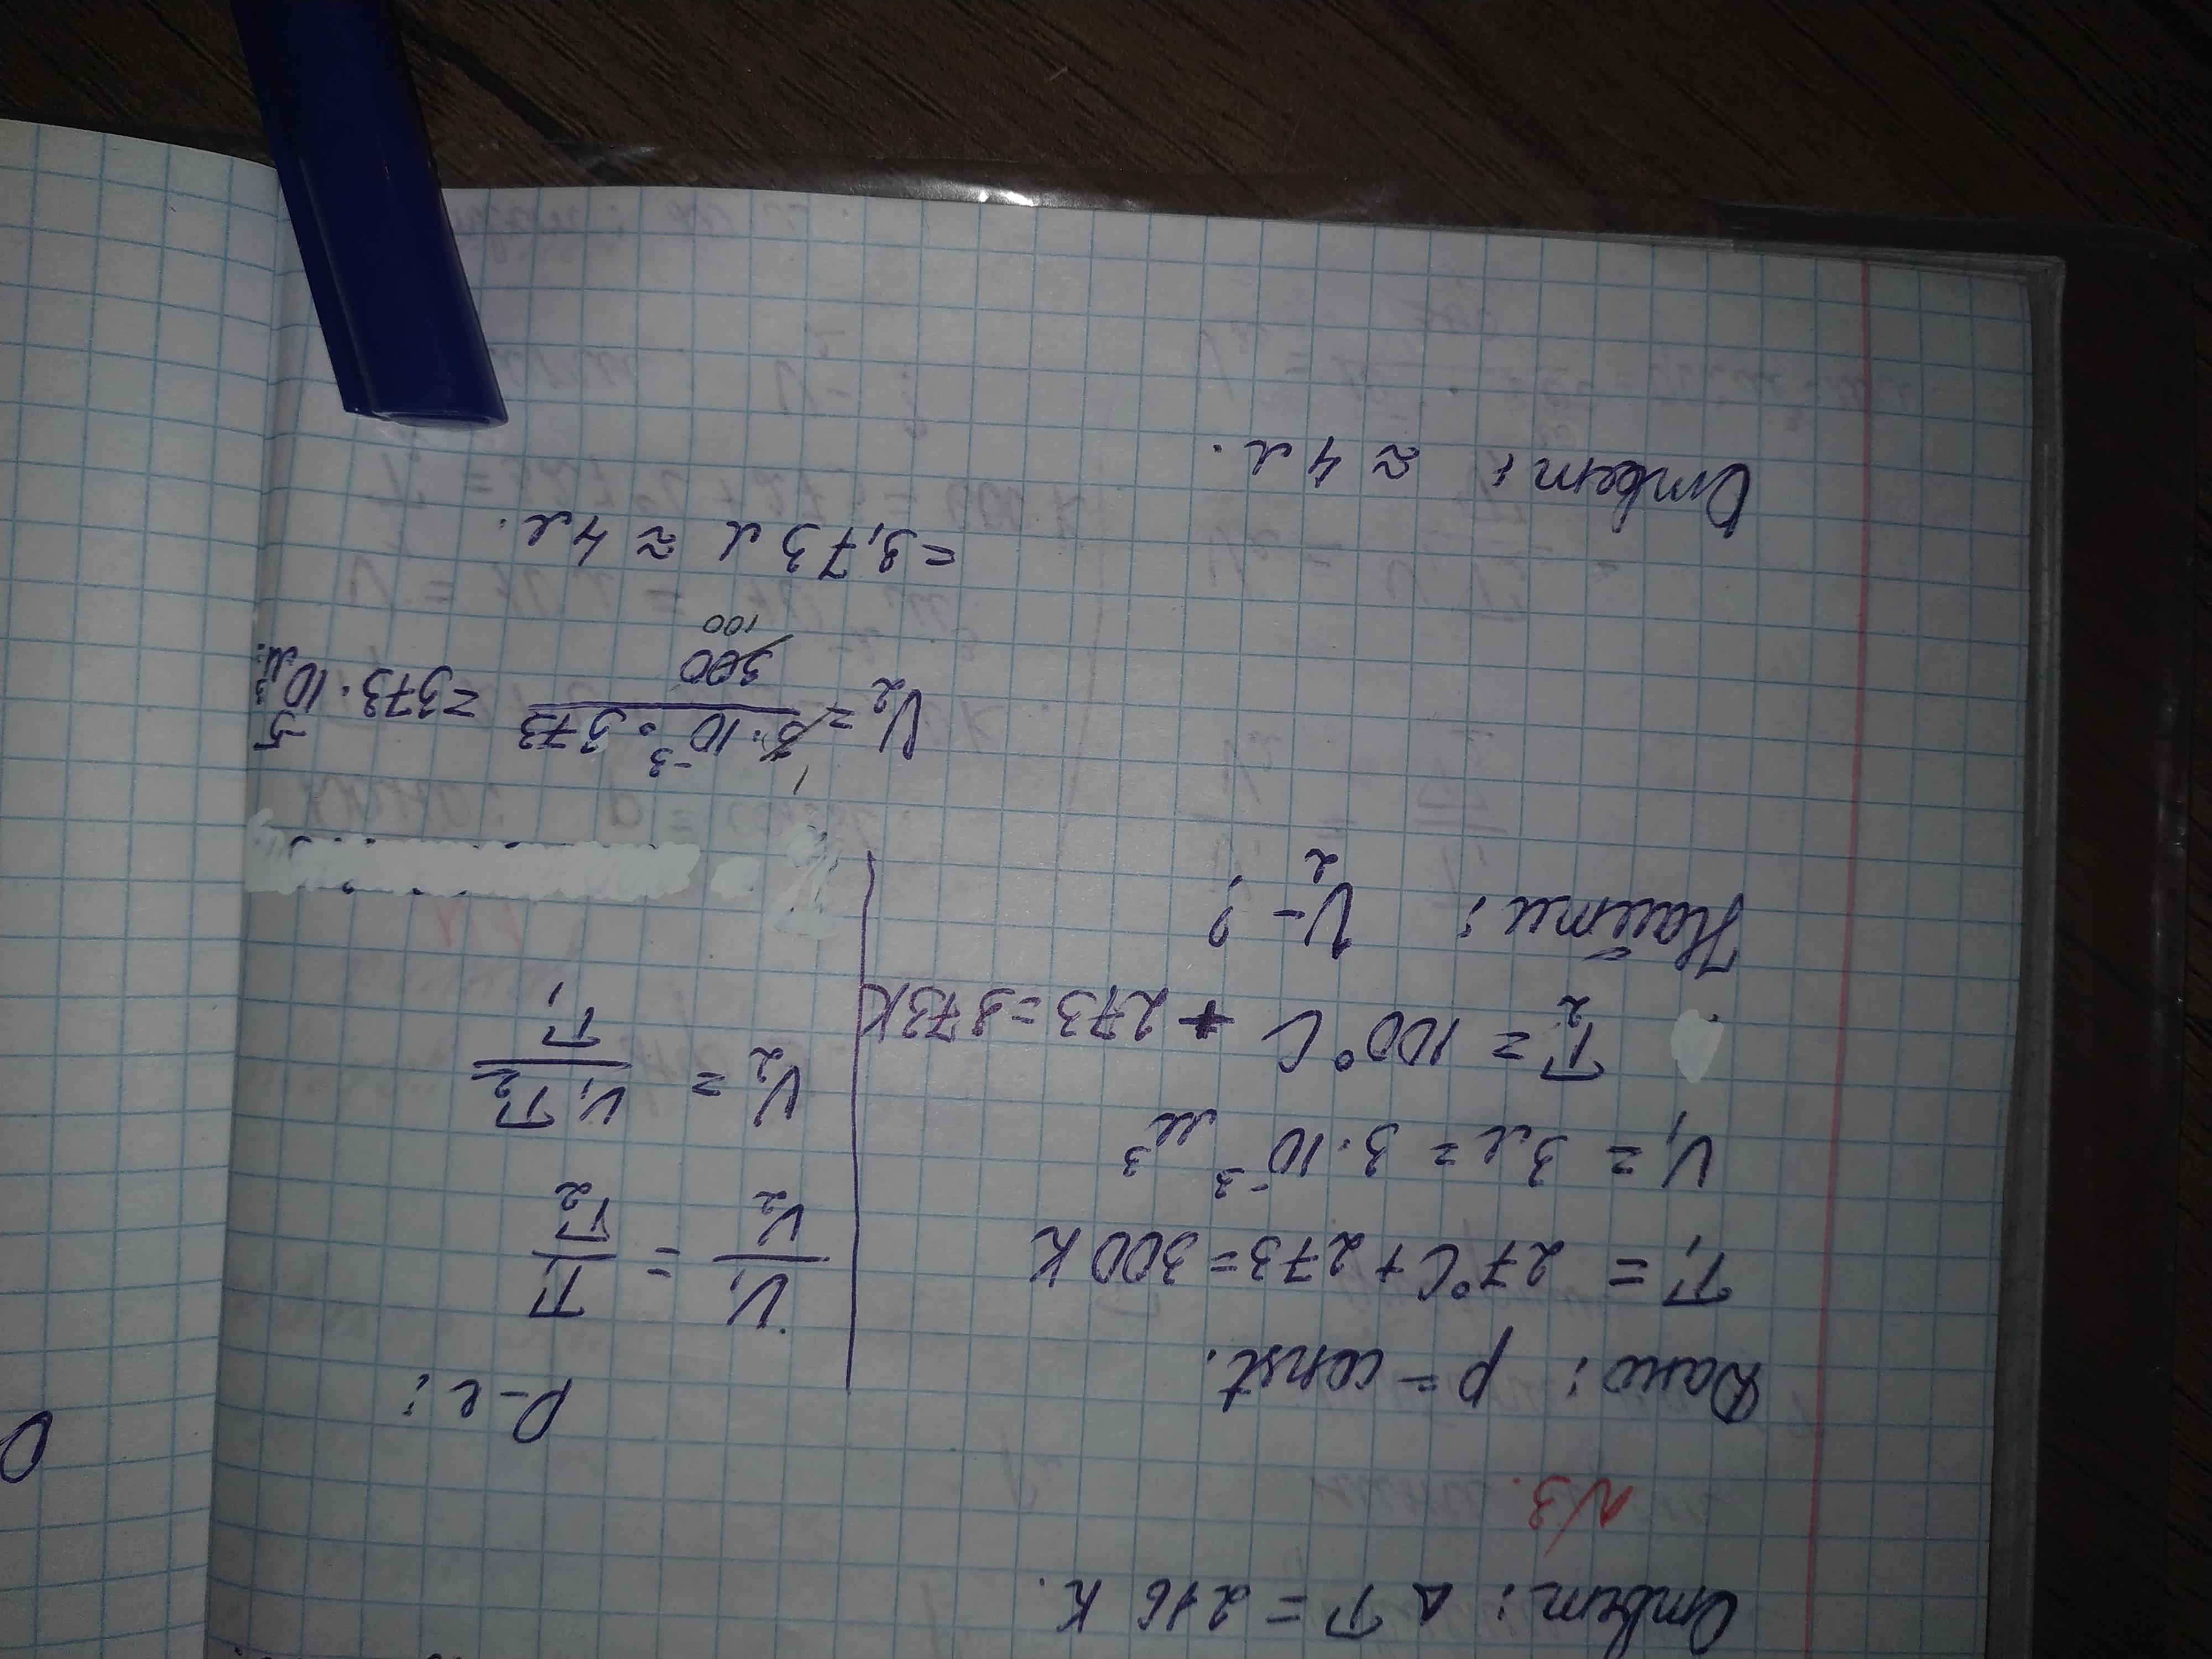 Ответ: ΔT = 216 К.
№3.
Дано: p = const.
T₁ = 27°C + 273 = 300 К
V₁ = 3 л = 3·10⁻³ м³
T₂ = 100°C + 273 = 373 К
Найти: V₂ - ?
Р-е:
V₁/V₂ = T₁/T₂
V₂ = V₁T₂/T₁
V₂ = 3·10⁻³·373/300 = 373·10⁻⁵ м³
1
100
= 3,73 л ≈ 4 л.
Ответ: ≈ 4 л.